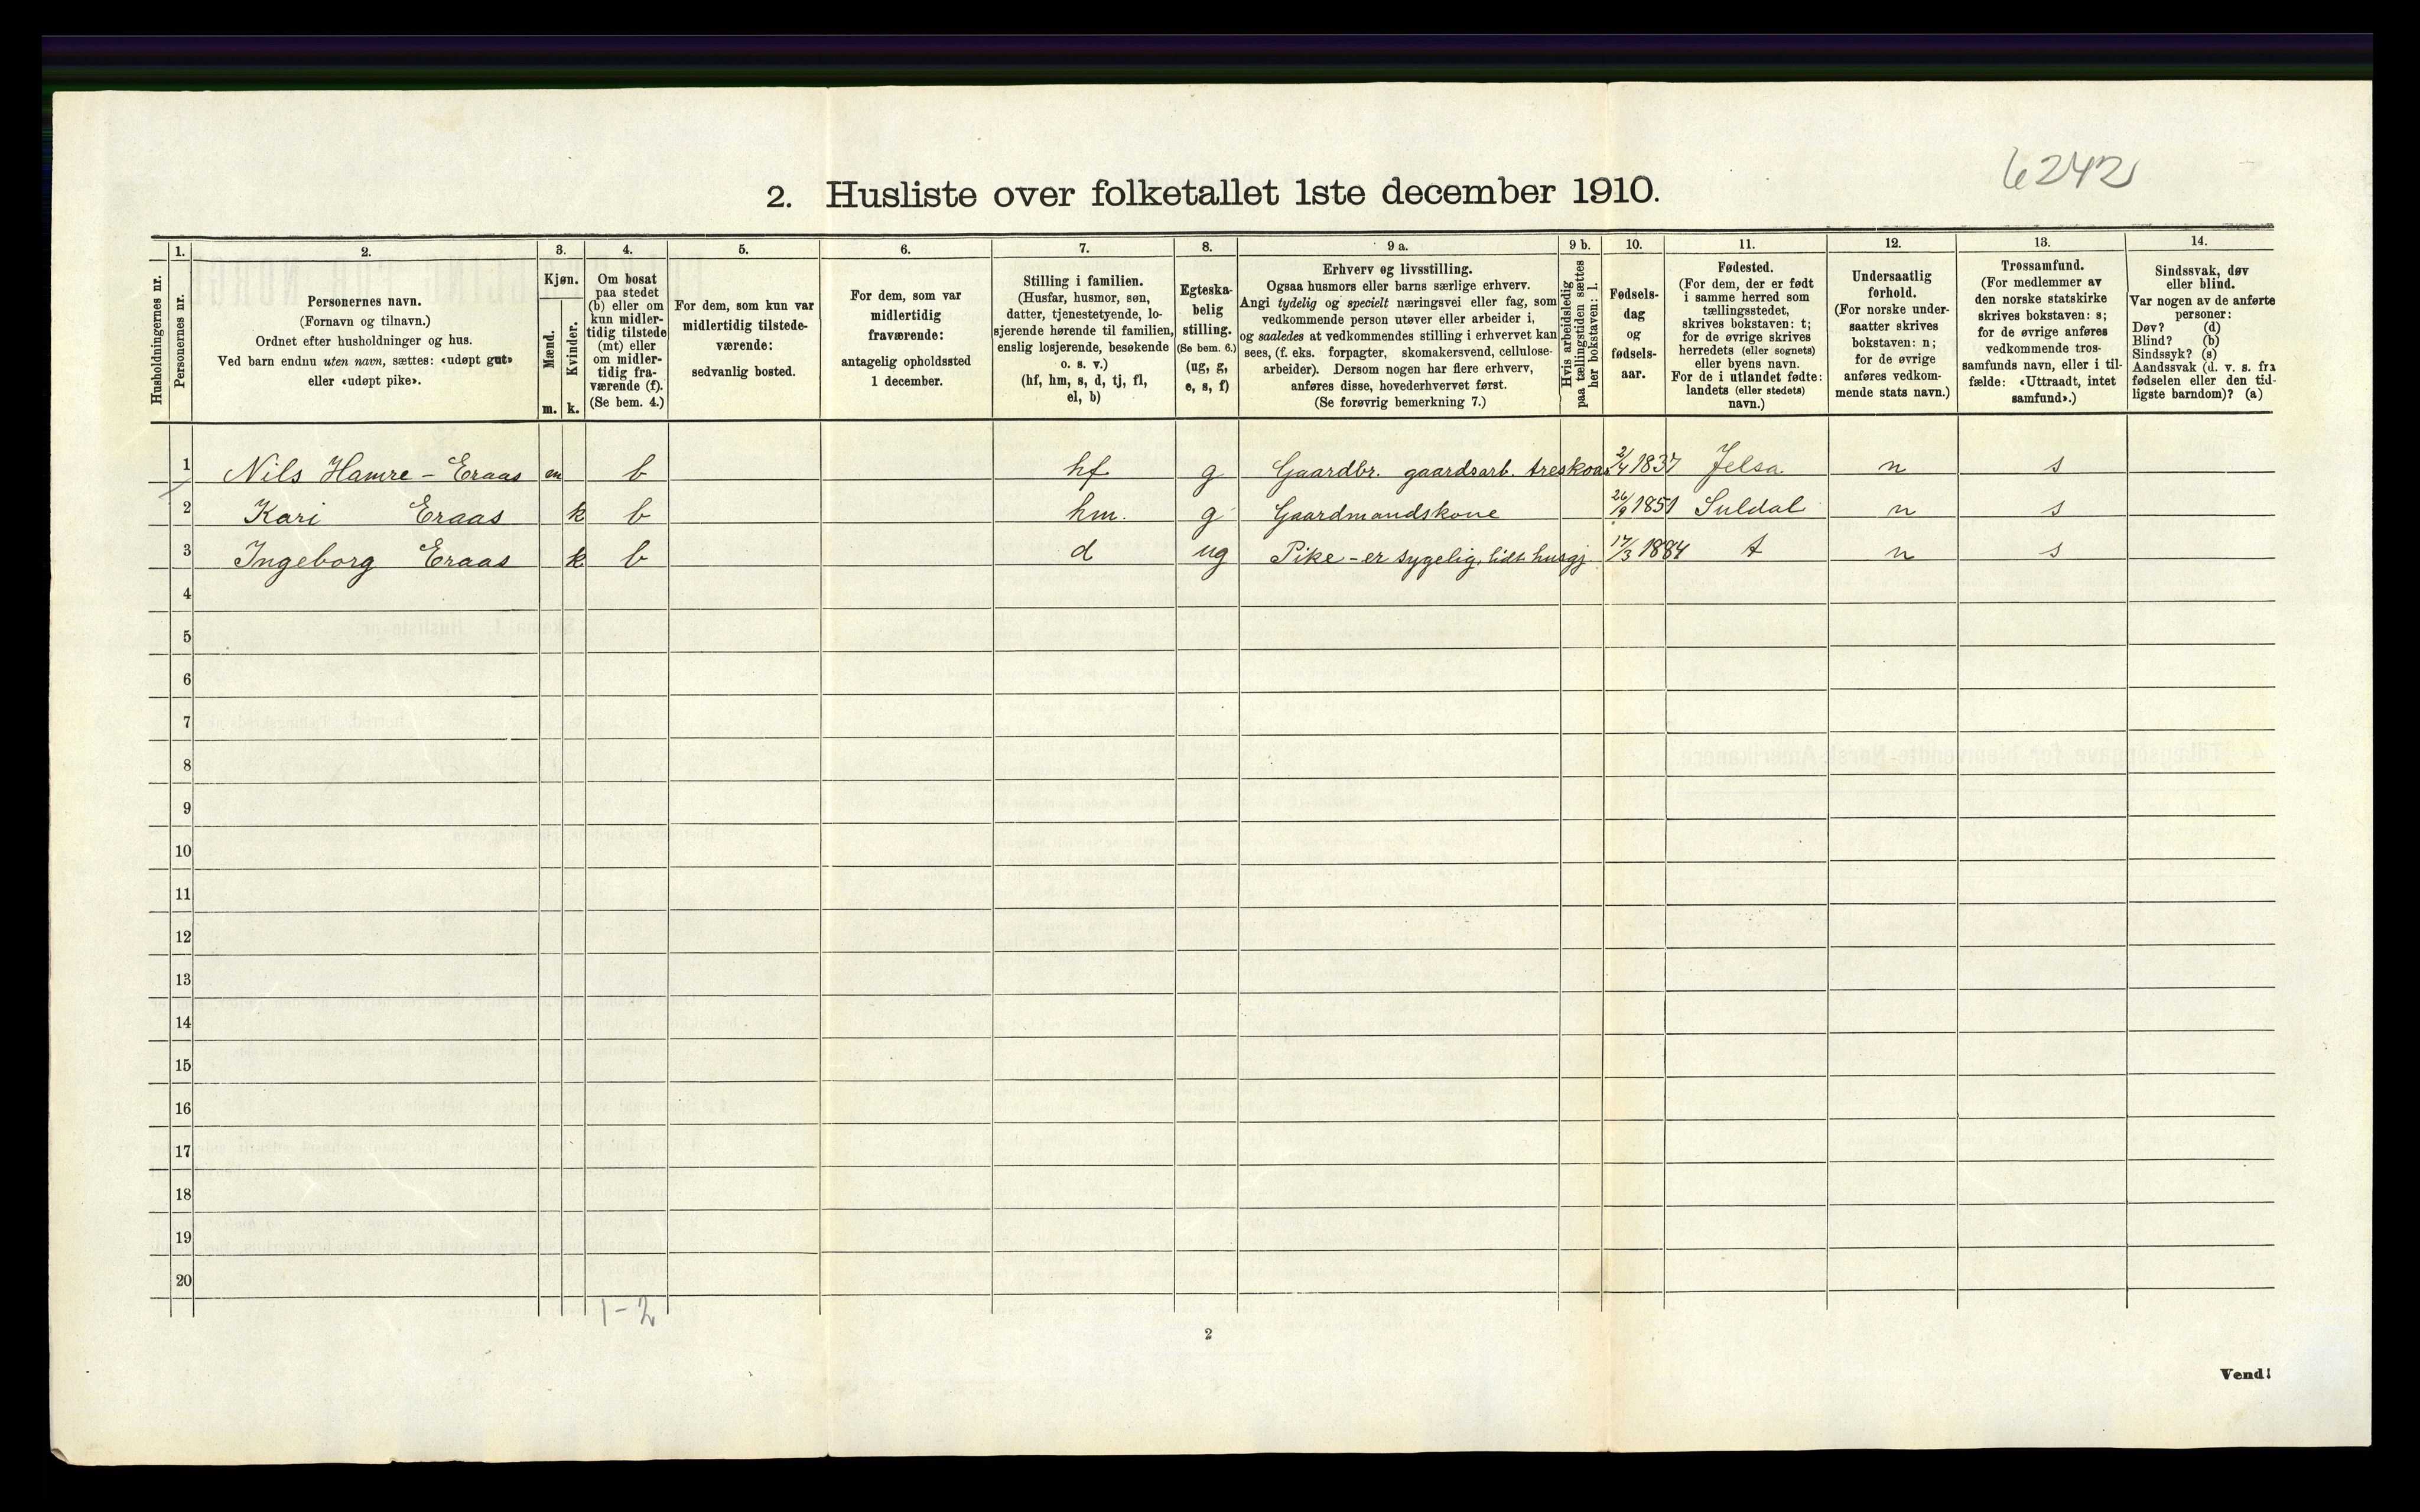 6242
2. Husliste over folketallet 1ste december 1910.
Husholdningernes nr.
1.
Personernes nr.
2.
Personernes navn.
(Fornavn og tilnavn.)
Ordnet efter husholdninger og hus.
Ved barn endnu uten navn, sættes: «udøpt gut»
eller «udøpt pike».
3.
Kjøn.
Mænd.
Kvinder.
m. k.
4.
Om bosat
paa stedet
(b) eller om
kun midler-
tidig tilstede
(mt) eller
om midler-
tidig fra-
værende (f).
(Se bem. 4.)
5.
For dem, som kun var
midlertidig tilstede-
værende:
sedvanlig bosted.
6.
For dem, som var
midlertidig
fraværende:
antagelig opholdssted
1 december.
7.
Stilling i familien.
(Husfar, husmor, søn,
datter, tjenestetyende, lo-
sjerende hørende til familien,
enslig losjerende, besøkende
o. s. v.)
(hf, hm, s, d, tj, fl,
el, b)
8.
Egteska-
belig
stilling.
(Se bem. 6.)
(ug, g,
e, s, f)
9 a.
Erhverv og livsstilling.
Ogsaa husmors eller barns særlige erhverv.
Angi tydelig og specielt næringsvei eller fag, som
vedkommende person utøver eller arbeider i,
og saaledes at vedkommendes stilling i erhvervet kan
sees, (f. eks. forpagter, skomakersvend, cellulose-
arbeider). Dersom nogen har flere erhverv,
anføres disse, hovederhvervet først.
(Se forøvrig bemerkning 7.)
9 b.
Hvis arbeidsledig
paa tællingstiden sættes
her bokstaven: l.
10.
Fødsels-
dag
og
fødsels-
aar.
11.
Fødested.
(For dem, der er født
i samme herred som
tællingsstedet,
skrives bokstaven: t;
for de øvrige skrives
herredets (eller sognets)
eller byens navn.
For de i utlandet fødte:
landets (eller stedets)
navn.)
12.
Undersaatlig
forhold.
(For norske under-
saatter skrives
bokstaven: n;
for de øvrige
anføres vedkom-
mende stats navn.)
13.
Trossamfund.
(For medlemmer av
den norske statskirke
skrives bokstaven: s;
for de øvrige anføres
vedkommende tros-
samfunds navn, eller i til-
fælde: «Uttraadt, intet
samfund».)
14.
Sindssvak, døv
eller blind.
Var nogen av de anførte
personer:
Døv? (d)
Blind? (b)
Sindssyk? (s)
Aandssvak (d. v. s. fra
fødselen eller den tid-
ligste barndom)? (a)
1 Nils Hamre - Eraas m b hf g Gaardbr. gaardsarb. treskoar 2/4 1837 Jelsa n s
2 Kari Eraas k b hm. g Gaardmandskone 26/9 1851 Suldal n s
3 Ingeborg Eraas k b d ug Pike - er sygelig, lidt husgj. 17/3 1884 t n s
4
5
6
7
8
9
10
11
12
13
14
15
16
17
18
19
20
1-2
2
Vend!